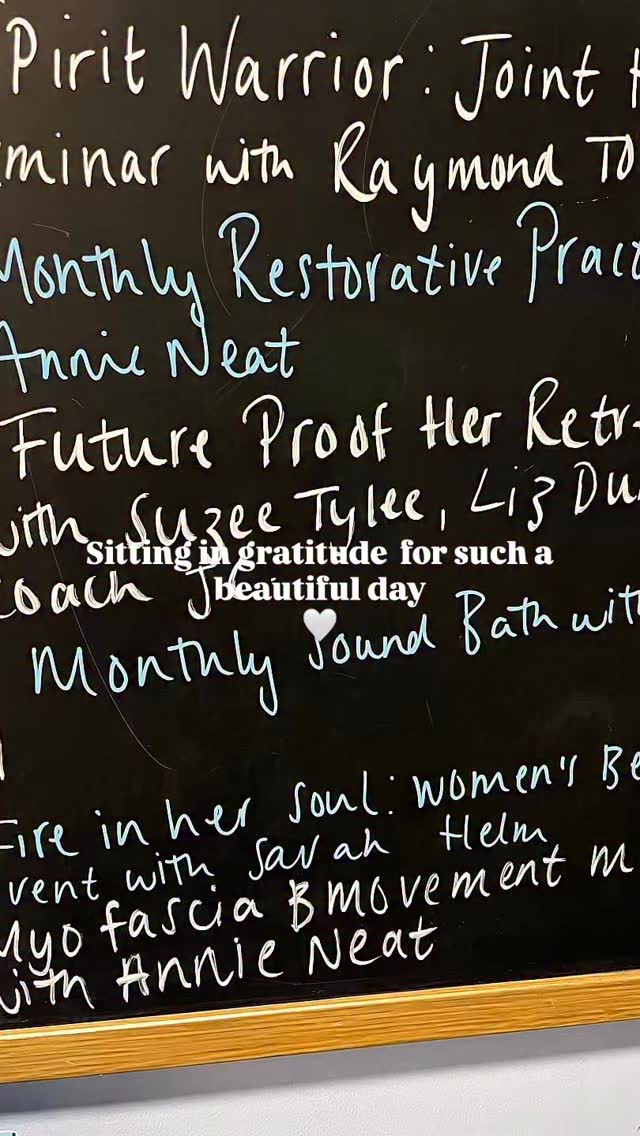 Pirit Warrior: Joint H
minar with Raymond To
Monthly Restorative Pract
Annie Neat
Future Proof Her Retr
with Suzee Tylee, Liz Du
Sitting in gratitude for such a
coach J
beautiful day
Monthly Sound Bath wit
Fire in her soul: women's Be
vent with Sarah Helm
Myo fascia & movement m
with Annie Neat